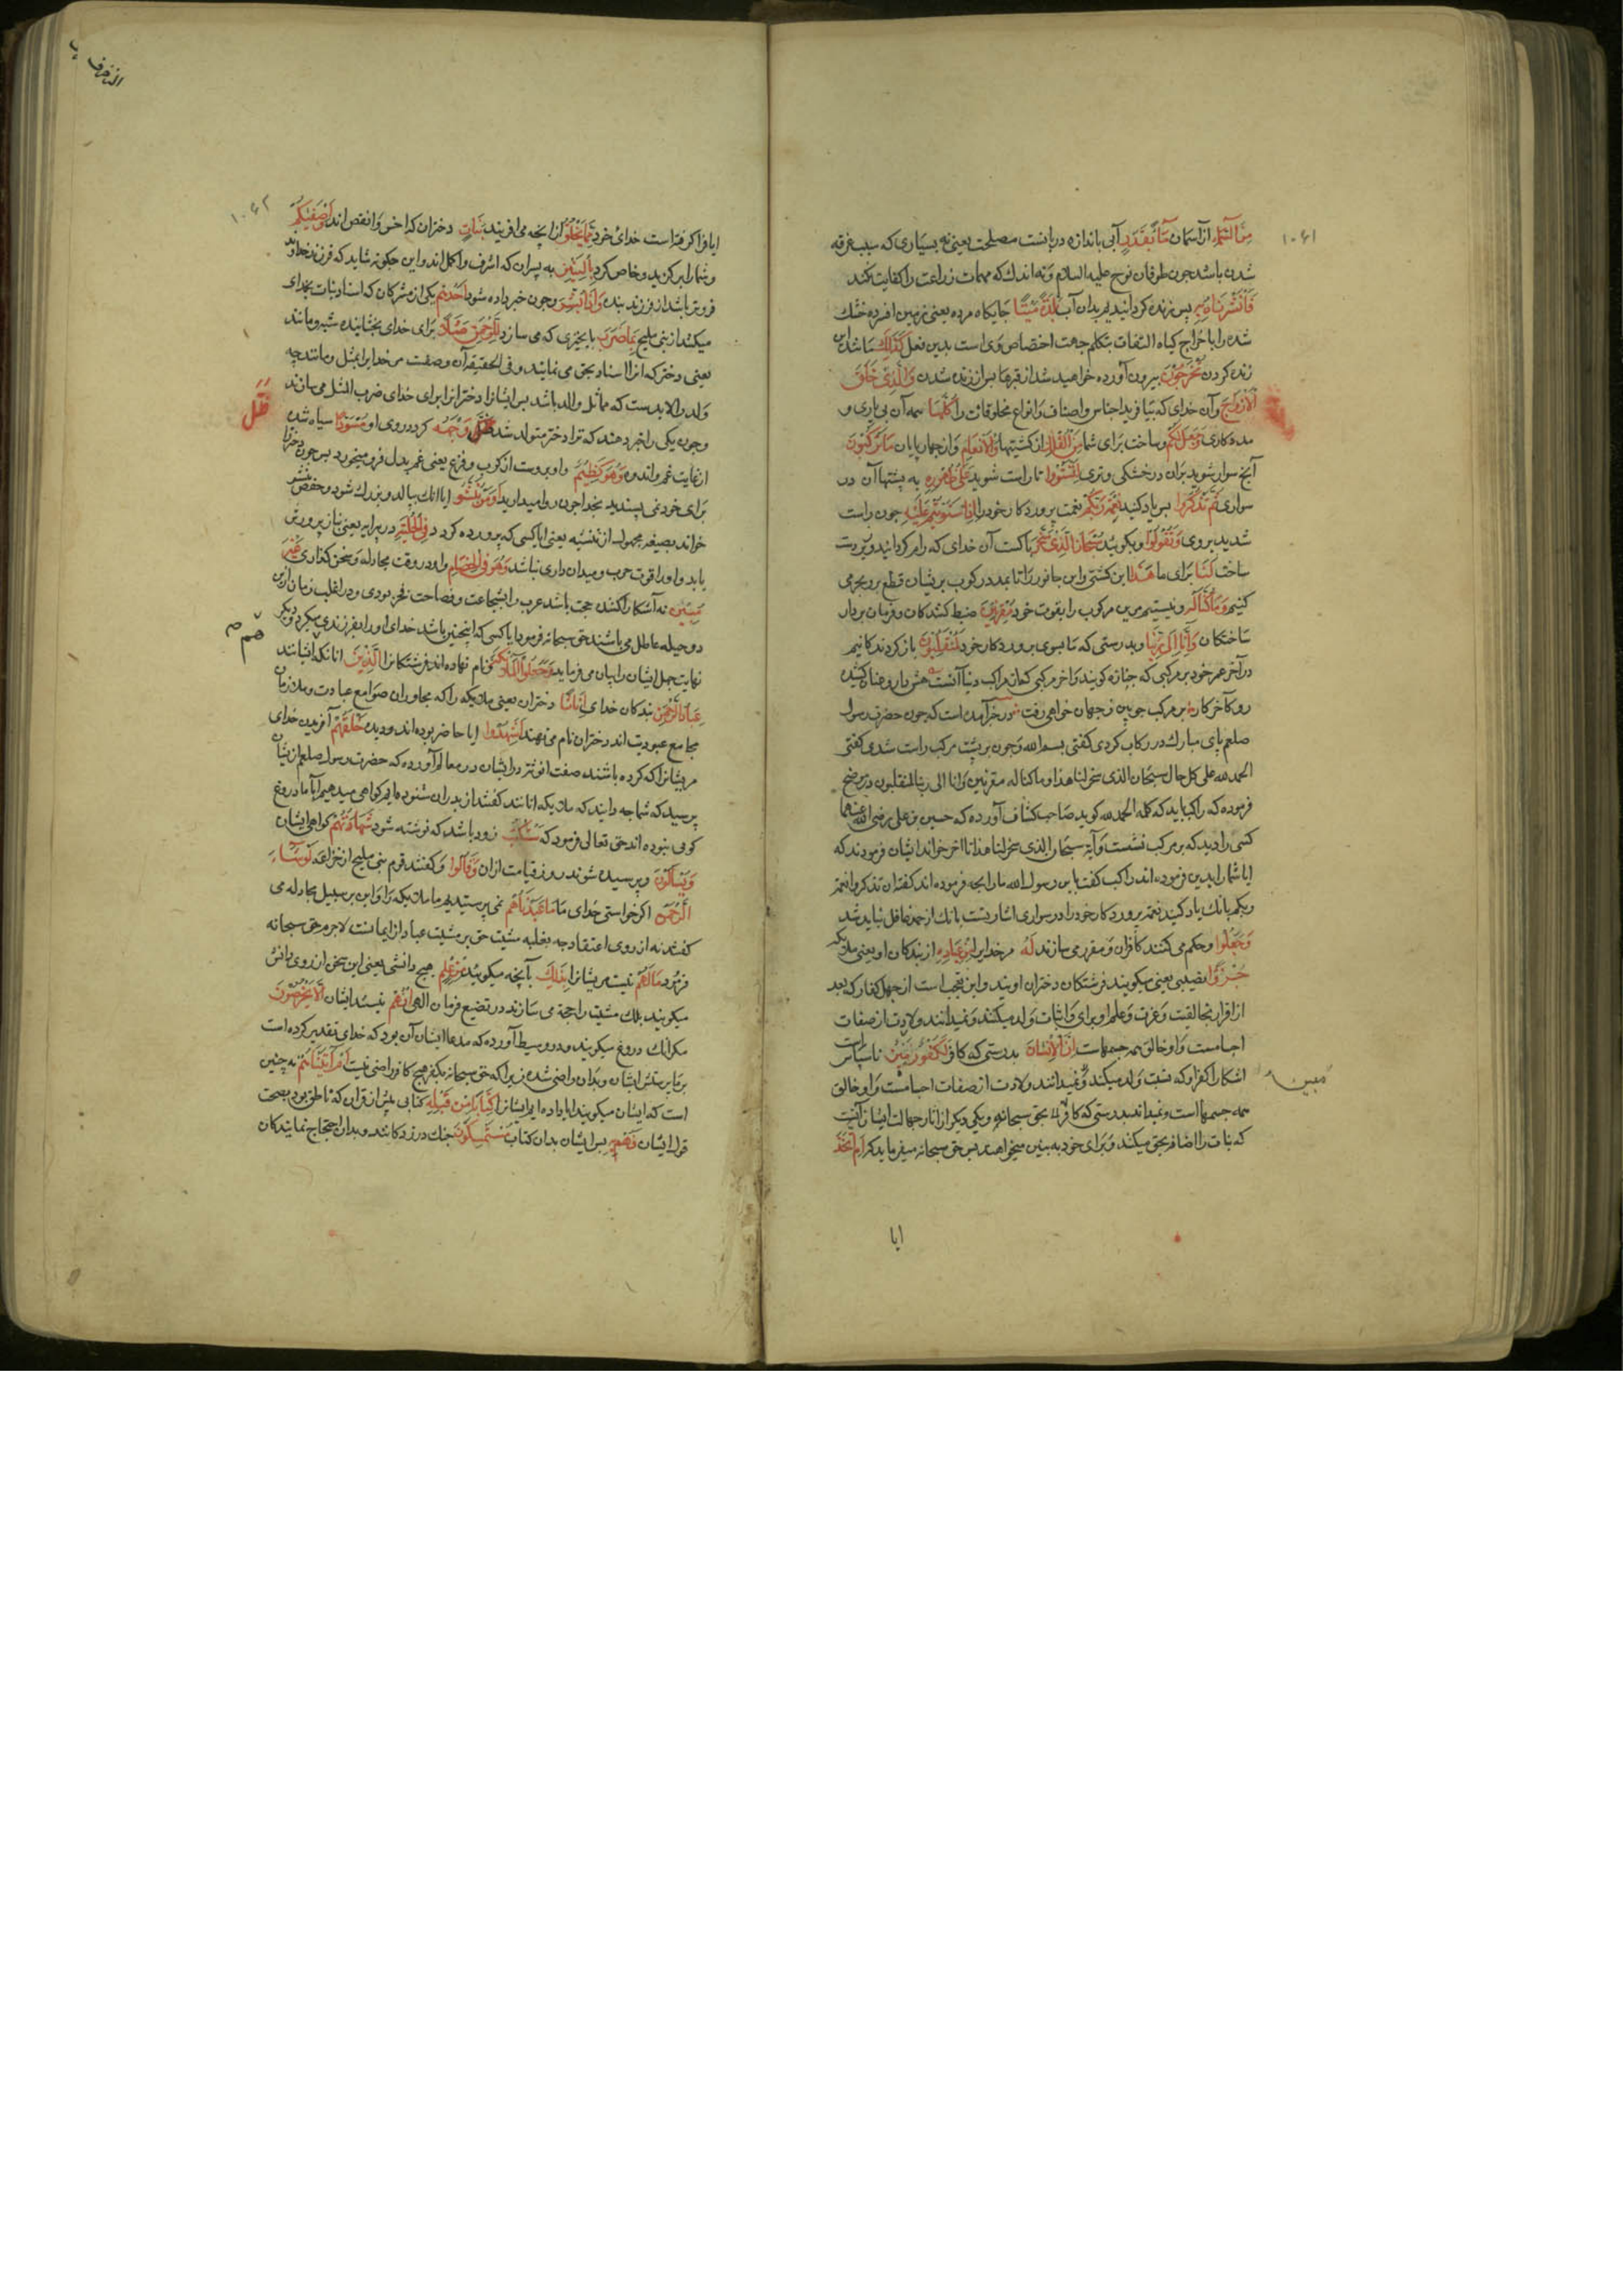 ۱۰۶۱
مِنَ السَّمَاءِ از آسمان مَاءً بِقَدَرٍ آبی باندازه دربایست مصلحت یعنی نه بسیاری که سبب غرقه
شدن باشد چون طوفان نوح علیه السلام و نه اندک که مهمات زراعت را کفایت نکند
فَأَنْشَرْنَا بِهِ پس زنده کردانیدیم بدان آب بَلْدَةً مَيْتًا جایکاه مرده یعنی زمین افسرده خشک
شده را باخراج کیاه التفات بتکلم جهت اختصاص وی است بدین فعل كَذَلِكَ مانند این
زنده کردن تُخْرَجُونَ بیرون آورده خواهید شد از قبرها پس از زنده شدن وَالَّذِي خَلَقَ
الْأَزْوَاجَ و آن خدای که بیافرید اجناس و اصناف و انواع مخلوقات را كُلَّهَا همه آن بی یاری و
مددکاری وَجَعَلَ لَكُمْ و ساخت برای شما مِنَ الْفُلْكِ از کشتیها وَالْأَنْعَامِ و از چهارپایان مَا تَرْكَبُونَ
آنچ سوار شوید بران در خشکی و تری لِتَسْتَوُوا تا راست شوید عَلَى ظُهُورِهِ به پشتهاآن در
سواری ثُمَّ تَذْكُرُوا پس یاد کنید نِعْمَةَ رَبِّكُمْ نعمت پروردکار خود را إِذَا اسْتَوَيْتُمْ عَلَيْهِ چون راست
شدید بروی وَتَقُولُوا و بکویید سُبْحَانَ الَّذِي سَخَّرَ پاکست آن خدای که رام کردانید و زیردست
ساخت لَنَا برای ما هَذَا این کشتی و این جانور را تا بمدد رکوب بریشان قطع بر و بحر می
کنیم وَمَا كُنَّا لَهُ و نیستیم مرین مرکوب را بقوت خود مُقْرِنِينَ ضبط کنندکان و فرمان بردار
ساختکان وَإِنَّا إِلَى رَبِّنَا و بدرستی که ما بسوی پروردکار خود لَمُنْقَلِبُونَ بازکردندکانیم
در آخر عمر خود بر مرکبی که جنازه کویند و آخر مرکبی که از مراکب دنیا آنست هش دار و عنان کشیده
رو کآخر کار بر مرکب چوبین ز جهان خواهی رفت در خبر آمده است که چون حضرت رسول
صلعم پای مبارک در رکاب کردی کفتی بسم الله و چون بر پشت مرکب راست شدی کفتی
الحمد لله علی کل حال سبحان الذی سخر لنا هذا و ما کنا له مقرنین و انا الی ربنا لمنقلبون
فرموده که راکب باید که کلمه الحمد لله کوید صاحب کشاف آورده که حسین بن علی رضی الله عنهما
کسی را دید که بر مرکب نشست و آیة سبحان الذی سخر لنا هذا تا آخر خواند ایشان فرمودند که
ایا شما را بدین فرموده اند راکب کفت یابن رسول الله ما را بچه فرموده اند کفت ان تذکروا نعمة
ربکم بانک یاد کنید نعمة پروردکار خود را در سواری اشارتست بانک از حمد غافل نباید شد
وَجَعَلُوا و حکم می کنند کافران و مقرر می سازند لَهُ مر خدایرا مِنْ عِبَادِهِ از بندکان او یعنی ملایکه
جُزْءًا نصیبی یعنی میکویند فرشتکان دختران اویند و این تعجب است از جهل کفار که بعد
از اقرار بخالقیت و عزت و علم او برای او اثبات ولد میکنند و نمیدانند ولادت از صفات
اجسامست و او خالق همه جسمهاست إِنَّ الْإِنْسَانَ بدرستی که کافر لَكَفُورٌ مُبِينٌ ناسپاس است
آشکارا کفر او که نسبت ولد میکند و نمیدانند ولادت از صفات اجسامست و او خالق
همه جسمها است و نمیداند بدرستی که کافر بحق سبحانه و یکی دیکر از آثار جهالت ایشان آنست
که بنات را اضافه بحق میکنند و برای خود به بنین میخواهند پس حق سبحانه میفرماید که أَمِ اتَّخَذَ
مبین
ایا
الزخرف
۱۰۶۲
ایا فرا کرفته است خدای خود مِمَّا يَخْلُقُ از انچه می آفریند بَنَاتٍ دختران که اخس و انقص اند وَأَصْفَاكُمْ
و شما را بر کزید و خاص کرد بِالْبَنِينَ به پسران که اشرف و اکمل اند و این چکونه شاید که فرزند خداوند
فروتر باشد از فرزند بنده وَإِذَا بُشِّرَ و چون خبر داده شود أَحَدُهُمْ یکی از مشرکان که اسناد بنات بخدای
میکنند از بنی ملیح بِمَا ضَرَبَ بانچیزی که می سازد لِلرَّحْمَنِ مَثَلًا برای خدای بخشاینده شبه و مانند
یعنی دختر که انرا اسناد بحق می نمایند و فی الحقیقه آن وصفت مر خدایرا بمثل و مانند چه
ولد را لابدست که مماثل والد باشد پس ایشانرا دخترانرا برای خدای ضرب المثل می سازند
و چون یکی را خبر دهند که ترا دختر متولد شد ظَلَّ وَجْهُهُ کردد روی او مُسْوَدًّا سیاه شده
از غایت غم و اندوه وَهُوَ كَظِيمٌ و او پر وست از کرب و فزع یعنی غم بدل فرو میخورد پس چون دختر
برای خود نمی پسندید بخدا چون روا میدارید أَوَمَنْ يُنَشَّأُ ایا انک ببالد و بزرک شود و حفص ینشؤ
خواند بصیغه مجهول از تنشیه یعنی ایا کسی که پرورده کردد فِي الْحِلْيَةِ در پیرایه یعنی بناز پرورش
یابد و او را قوت حرب و میدان داری نباشد وَهُوَ فِي الْخِصَامِ و او در وقت مجادله و سخن کذاری غَيْرُ
مُبِينٍ نه آشکارا کننده حجت باشد عرب را بشجاعت و فصاحت فخر بودی و در اغلب زنان ازین
دو حیله عاطل می باشند حق سبحانه فرمود ایا کسی که اینچنین باشد خدای او را بفرزندی میکیرد و دیکر
نهایت جهل ایشان را بیان می فرماید وَجَعَلُوا الْمَلَائِكَةَ و نام نهاده اند فرشتکانرا الَّذِينَ انانکه ایشانند
عِبَادُ الرَّحْمَنِ بندکان خدای إِنَاثًا دختران یعنی ملایکه را که مجاوران صوامع عبادت و ملازمان
مجامع عبودیت اند دختران نام می نهند أَشَهِدُوا ایا حاضر بوده اند و دیده خَلْقَهُمْ آفریدن خدای
مر یشانرا که کرده باشند صفت انوثت در ایشان در معالم آورده که حضرت رسول صلعم ازیشان
پرسید که شما چه دانید که ملایکه اناثند کفتند از پدران شنوده ایم و کواهی میدهیم که آباء ما دروغ
کوی نبوده اند حق تعالی فرمود که سَتُكْتَبُ زود باشد که نوشته شود شَهَادَتُهُمْ کواهی ایشان
وَيُسْأَلُونَ و پرسیده شوند روز قیامت ازان وَقَالُوا و کفتند قوم بنی ملیح از خزاعه لَوْ شَاءَ
الرَّحْمَنُ اکر خواستی خدای مَا عَبَدْنَاهُمْ نمی پرستیدیم ما ملایکه را و این بر سبیل مجادله می
کفتند نه از روی اعتقاد چه بغلبه مشیت حق بر مشیت عباد از ایمانست لاجرم حق سبحانه
فرمود مَا لَهُمْ نیست مر یشانرا بِذَلِكَ بآنچه میکویند مِنْ عِلْمٍ هیچ دانشی یعنی این سخن از روی دانش
میکویند بلک مشیت را حجة می سازند در تضییع فرمان الهی إِنْ هُمْ نیستند ایشان إِلَّا يَخْرُصُونَ
مکر انک دروغ میکویند و در وسیط آورده که مدعا ایشان آن بود که خدای تقدیر کرده است
بر ما پرستش ایشان و بدان راضی شده زیرا که حق سبحانه بکفر هیچ کافر راضی نیست أَمْ آتَيْنَاهُمْ نه چنین
است که ایشان میکویند ایا داده ایم ایشانرا كِتَابًا مِنْ قَبْلِهِ کتابی پیش از قران که ناطق بود بصحت
قول ایشان فَهُمْ بِهِ پس ایشان بدان کتاب مُسْتَمْسِكُونَ چنک در زدکانند و بدان احتجاج نمایندکان
ظَلَّ